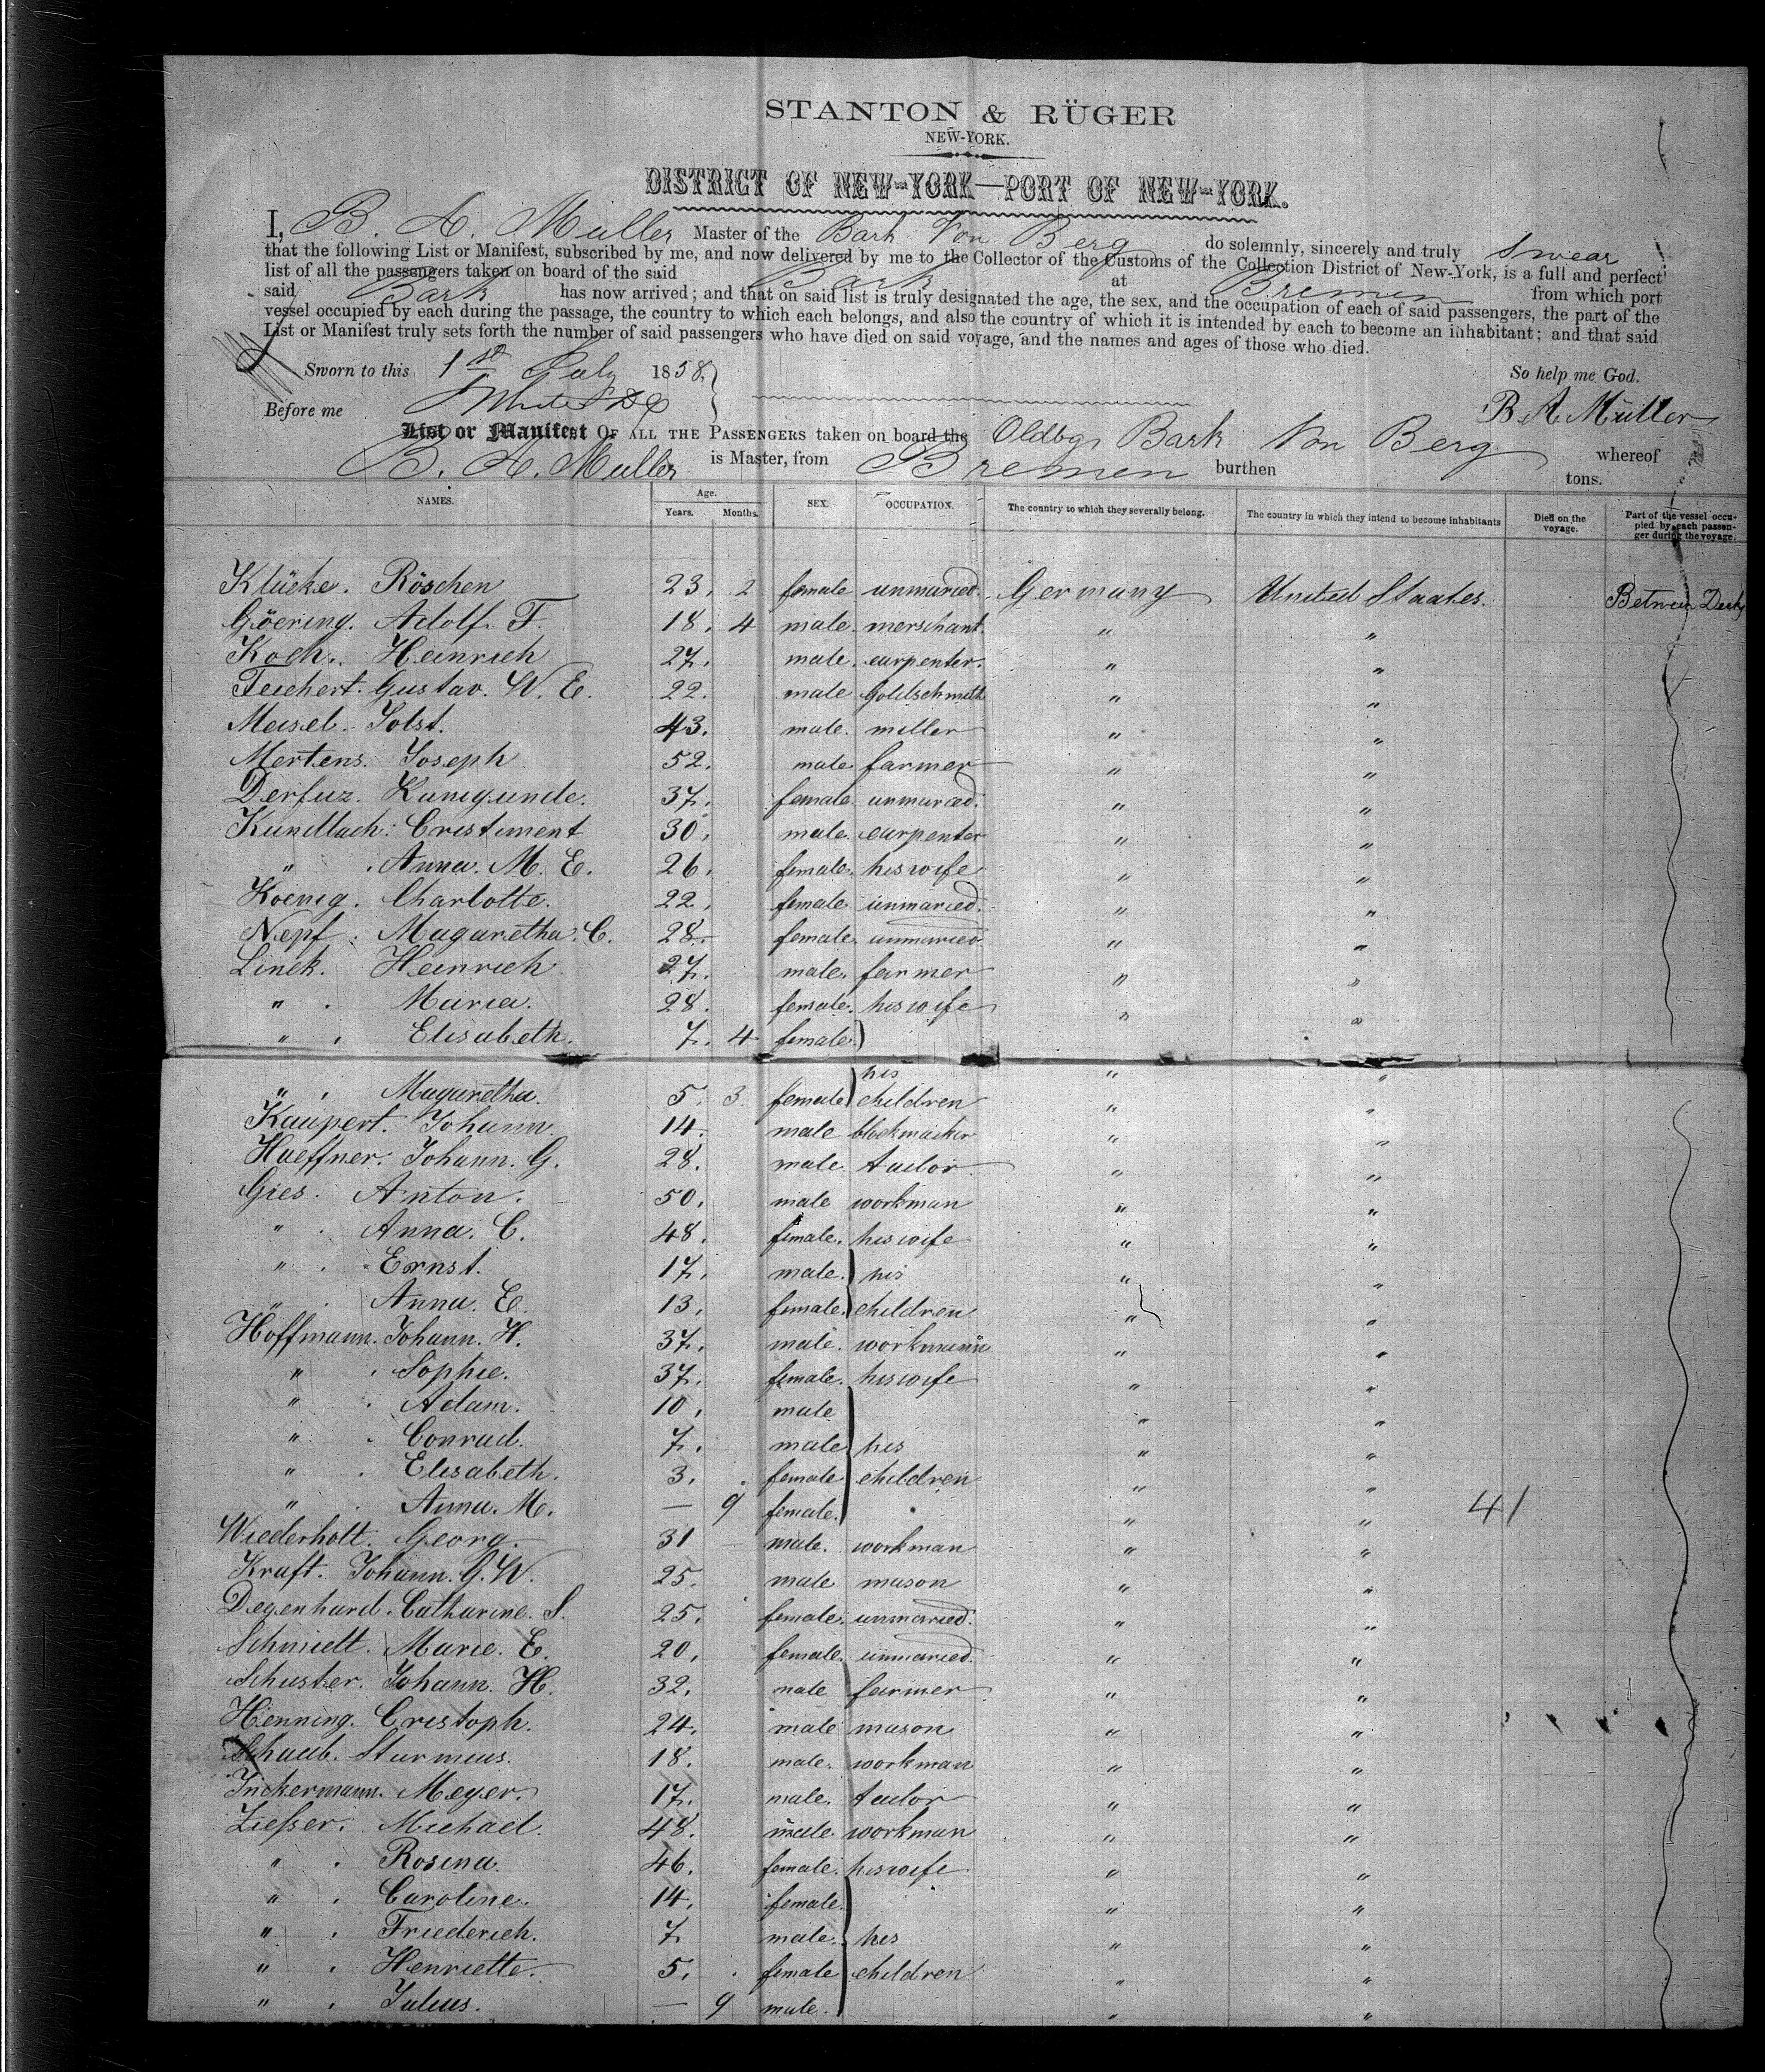 STANTON & RÜGER
NEW-YORK.
DISTRICT OF NEW-YORK—PORT OF NEW-YORK.
I, B. A. Muller Master of the Bark Von Berg do solemnly, sincerely and truly swear
that the following List or Manifest, subscribed by me, and now delivered by me to the Collector of the Customs of the Collection District of New-York, is a full and perfect
list of all the passengers taken on board of the said Bark at Bremen from which port
said Bark has now arrived; and that on said list is truly designated the age, the sex, and the occupation of each of said passengers, the part of the
vessel occupied by each during the passage, the country to which each belongs, and also the country of which it is intended by each to become an inhabitant; and that said
List or Manifest truly sets forth the number of said passengers who have died on said voyage, and the names and ages of those who died.
Sworn to this 1st July 1858. So help me God.
Before me B. A. Müller
List or Manifest OF ALL THE PASSENGERS taken on board the Oldbg. Bark Von Berg whereof
B. A. Muller is Master, from Bremen burthen tons.
NAMES. Age. Years. Months. SEX. OCCUPATION. The country to which they severally belong. The country in which they intend to become inhabitants Died on the voyage. Part of the vessel occupied by each passenger during the voyage.
Klücke. Röschen 23. 2 female unmaried. Germany United Staates. Between Deck
Göering. Adolf. F. 18. 4 male. merschant. " "
Koch. Heinrich 27. male. carpenter. " "
Teichert. Gustav. W. E. 22. male Goldschmith " "
Meisel. Jobst. 43. male. miller " "
Mertens. Joseph 52. male farmer " "
Derfuz. Kunigunde. 37. female unmaried. " "
Kundlach. Cristiment 30. male. carpenter " "
" . Anna. M. E. 26. female. his wife " "
Koenig. Charlotte. 22. female unmaried. " "
Nepf. Magaretha. C. 28. female unmaried. " "
Linek. Heinrich 27. male. farmer " "
" . Maria. 28. female. his wife " "
" . Elisabeth. 7. 4 female.
" . Magaretha. 5. 3. female his children " "
Kaupert. Johann 14. male blockmacker " "
Haeffner. Johann. G. 28. male. tailor " "
Gies. Anton. 50. male workman " "
" . Anna. C. 48. female. his wife " "
" . Ernst. 17. male. his " "
" . Anna. E. 13. female. children " "
Hoffmann. Johann. H. 37. male. workmann " "
" . Sophie. 37. female. his wife " "
" . Adam. 10. male " "
" . Conrad. 7. male his " "
" . Elisabeth. 3. female children " "
" . Anna. M. — 9 female. " " 41
Wiederholt. Georg. 31 male. workman " "
Kraft. Johann. G. W. 25. male mason " "
Degenhard. Catharine. S. 25. female. unmaried. " "
Schmidt. Marie. E. 20. female. unmaried. " "
Schuster. Johann. H. 32. male farmer " "
Henning. Cristoph. 24. male mason " "
Schaub. Sturmius. 18. male. workman " "
Inckermann. Meyer. 17. male. tailor " "
Ließer. Michael. 48. male workman " "
" . Rosina. 46. female. his wife " "
" . Caroline. 14. female. " "
" . Friederich. 7 male. his " "
" . Henriette. 5. female children " "
" . Julius. — 9 male. " "